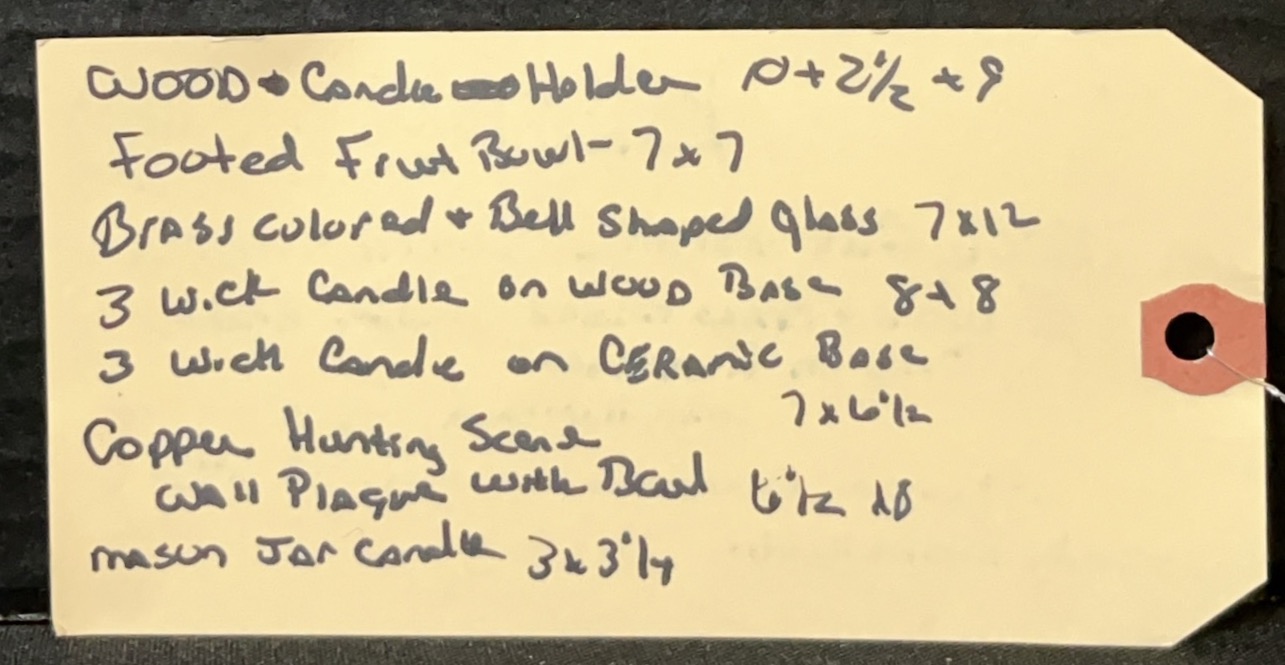 WOOD Candle Holder + 2 1/2 + 9
Footed Fruit Bowl - 7 x 7
Brass colored + Bell Shaped glass 7 x 12
3 Wick Candle on WOOD Base 8 x 8
3 Wick Candle on CERAMIC Base
7 x 6 1/2
Copper Hunting Scene
Wall Plaque with 6 1/2 x 8
mason Jar Candle 3 x 3 1/4